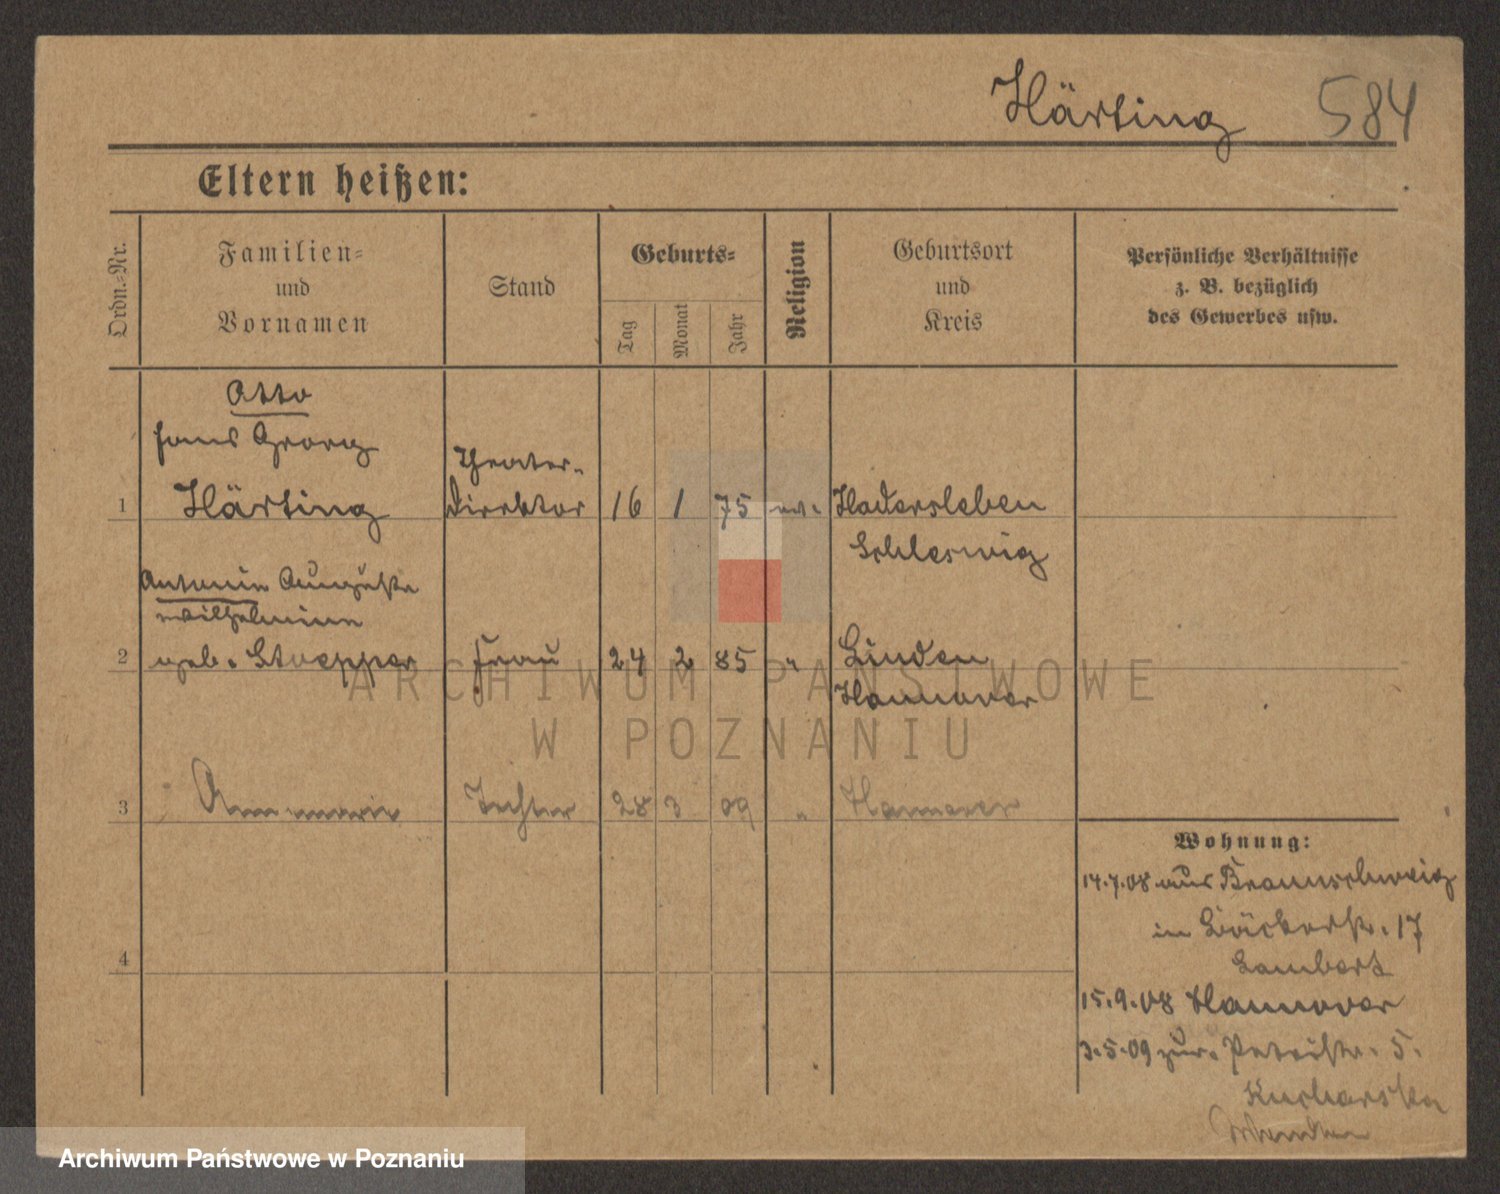 Härting 584
Eltern heißen:
Ordn.-Nr.
Familien-
und
Vornamen
Stand
Geburts-
Tag
Monat
Jahr
Religion
Geburtsort
und
Kreis
Persönliche Verhältnisse
z. B. bezüglich
des Gewerbes usw.
Otto
Hans Georg
Theater-
1 Härting Direktor 16 1 75 ev. Hadersleben
Schleswig
Antonie Auguste
Wilhelmine
2 geb. Stoepper Frau 24 2 85 " Linden
Hannover
3 Annemarie Tochter 28 3 09 " Hannover
4
Wohnung:
14.7.08 aus Braunschweig
in Bäckerstr. 17
Lambert
15.9.08 Hannover
3.5.09 zur. Petristr. 5.
Kucharska
ARCHIWUM PAŃSTWOWE
W POZNANIU
Archiwum Państwowe w Poznaniu